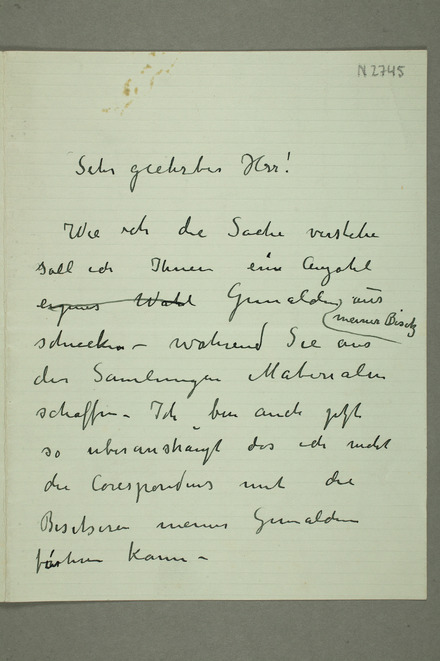 N 2745
Sehr geehrter Herr!
Wie ich die Sache verstehe
soll ich Ihnen eine Anzahl
eigener Wahl Gemalden aus
meiner Besitz
schicken – während Sie aus
den Samlungen Materialen
schaffen – Ich bin auch jetzt
so uberanstrengt das ich nicht
die Corespondens mit die
Besitseren meiner Gemalden
führen kann –